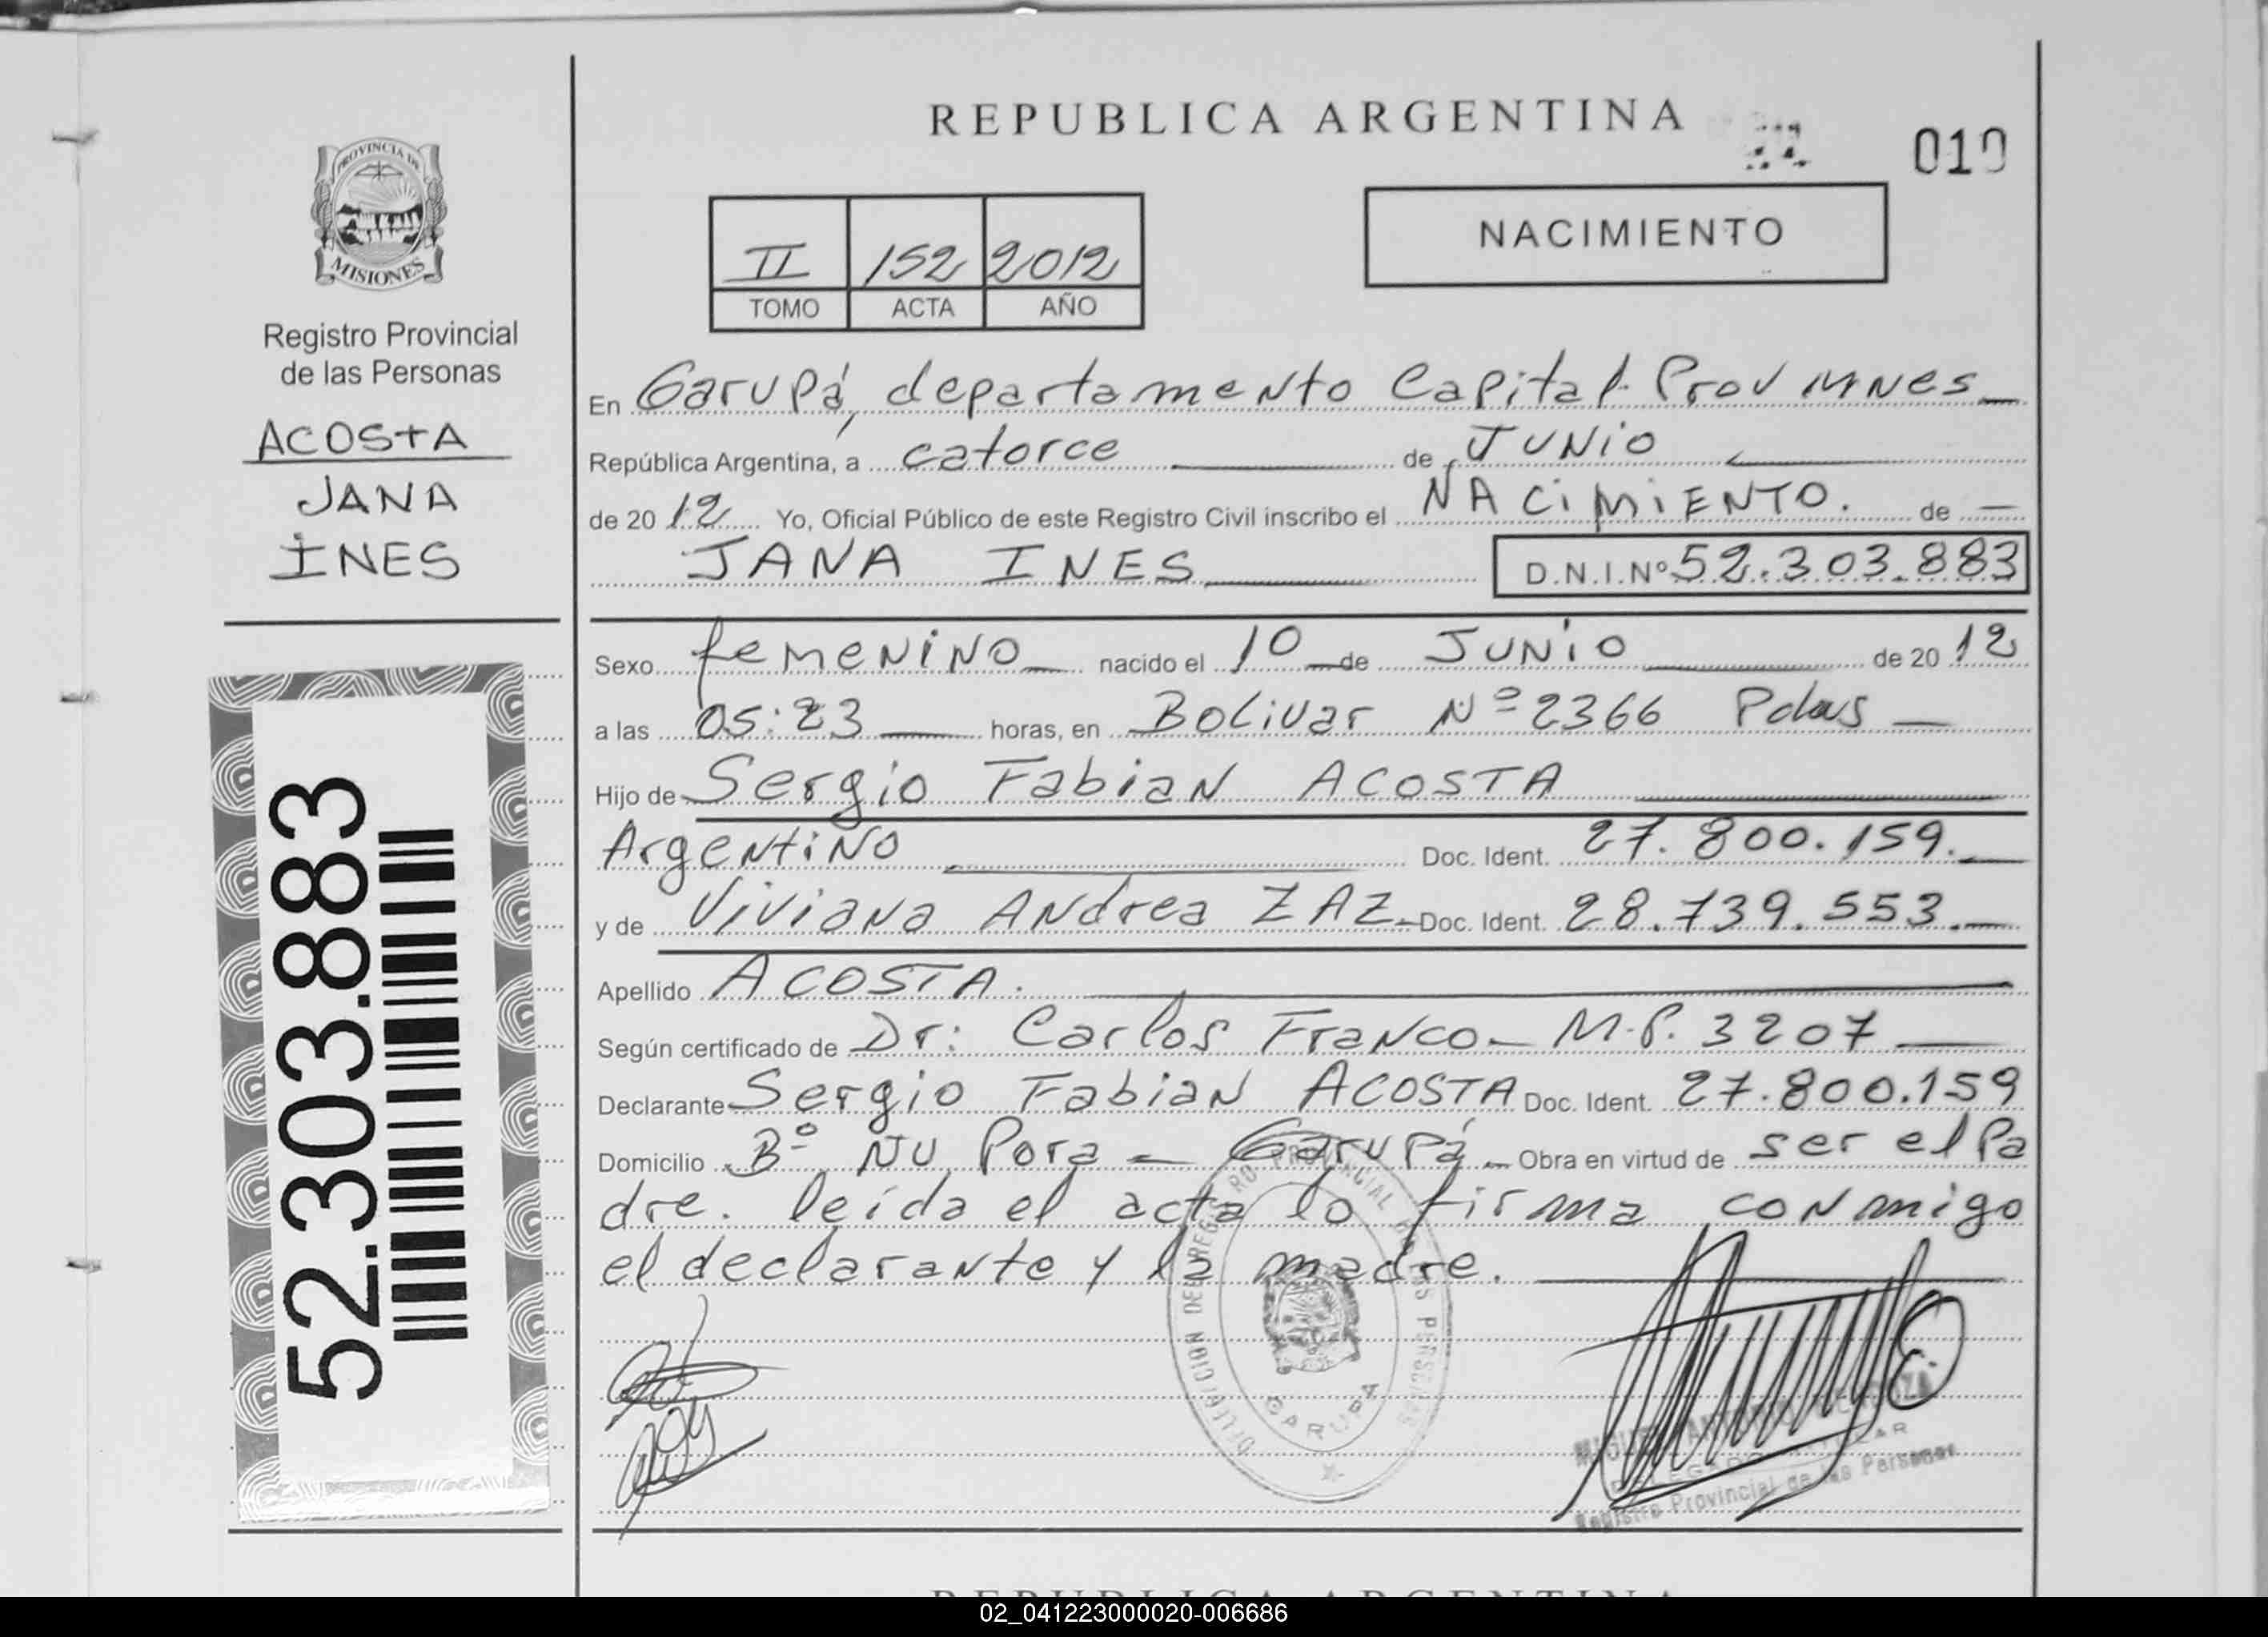 REPUBLICA ARGENTINA
010
PROVINCIA DE
MISIONES
Registro Provincial
de las Personas
ACOSTA
JANA
INES
52.303.883
II 152 2012
TOMO ACTA AÑO
NACIMIENTO
En Garupá, departamento Capital. Prov Mnes
República Argentina, a catorce de JUNIO
de 2012 Yo, Oficial Público de este Registro Civil inscribo el NACIMIENTO. de
JANA INES D.N.I.Nº 52.303.883
Sexo femenino nacido el 10 de JUNIO de 2012
a las 05:23 horas, en Bolivar Nº 2366 Pdas
Hijo de Sergio Fabian ACOSTA
Argentino Doc. Ident. 27.800.159.
y de Viviana Andrea ZAZ Doc. Ident. 28.739.553.
Apellido ACOSTA.
Según certificado de Dr: Carlos Franco - M.P. 3207
Declarante Sergio Fabian ACOSTA Doc. Ident. 27.800.159
Domicilio Bº Ñu Pora - Garupá - Obra en virtud de ser el Pa
dre. leida el acta lo firma conmigo
el declarante y la madre.
DELEGACION DEL REGISTRO PROVINCIAL DE LAS PERSONAS
GARUPA
MIGUEL ANTONIO
DELEGADO TITULAR
Registro Provincial de las Personas
REPUBLICA ARGENTINA
02_041223000020-006686